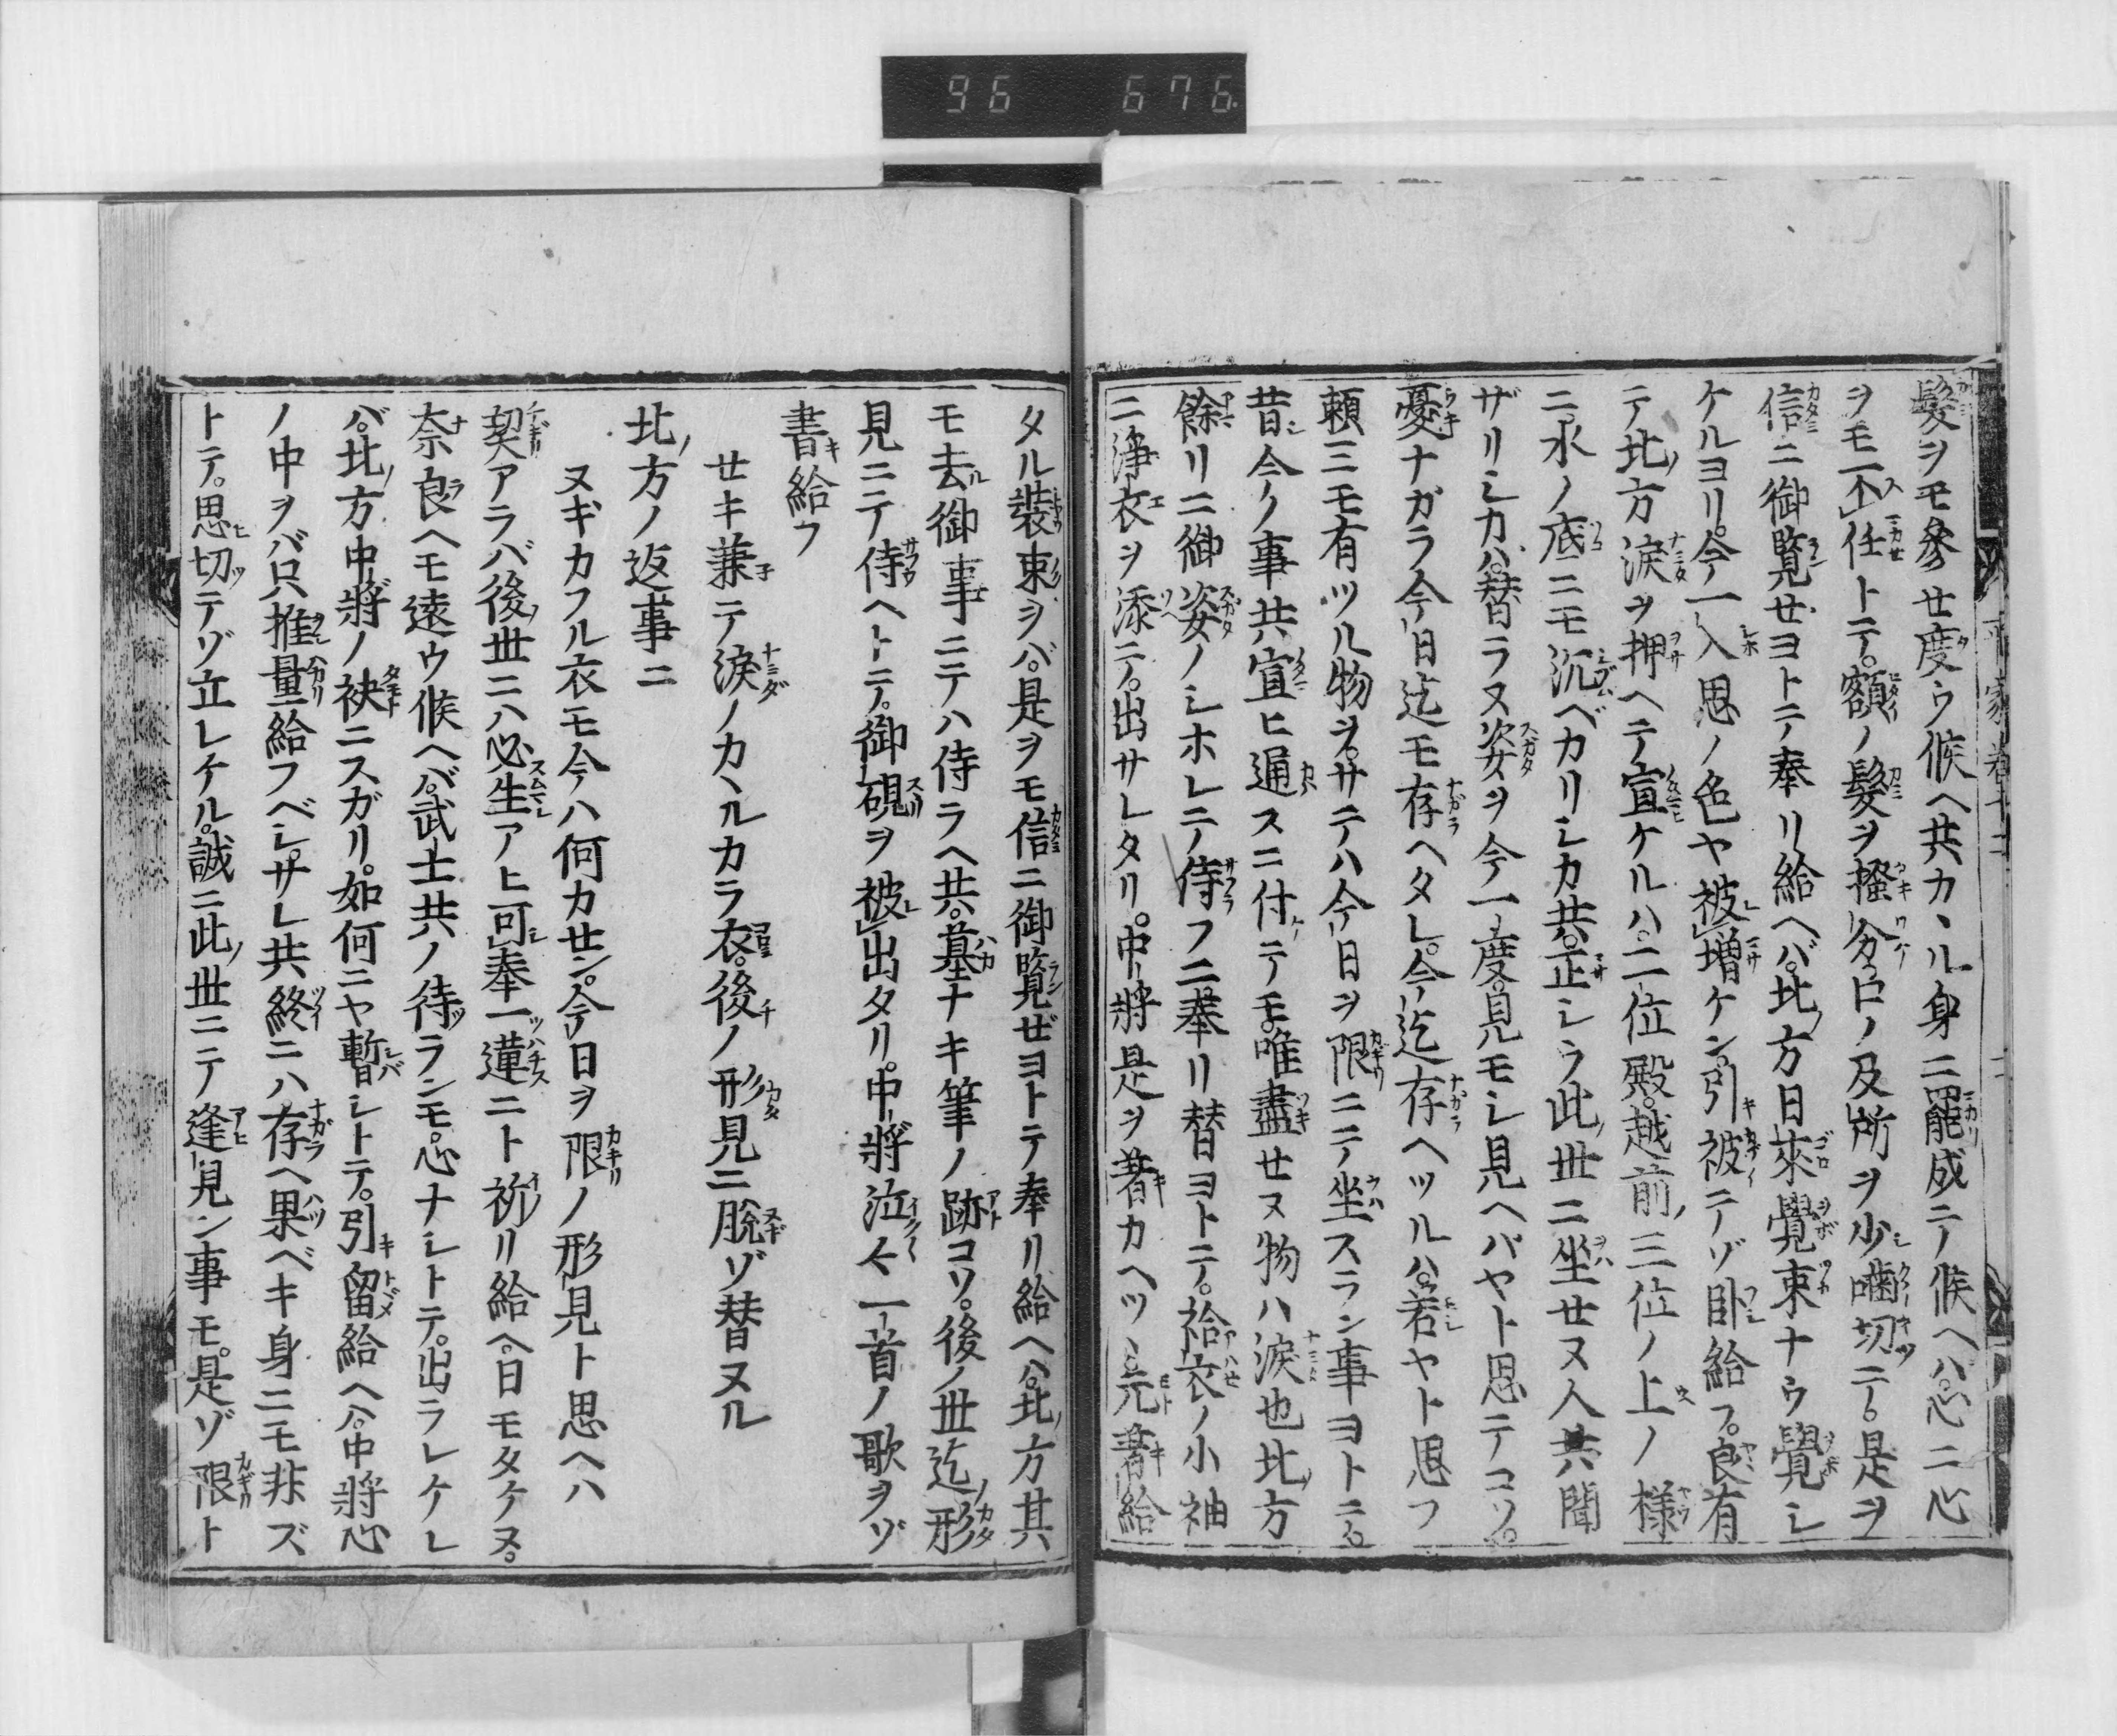 96 676.
髪ヲモ參セ度ウ候ヘ共カヽル身ニ罷成テ候ヘハ心ニ心
ヲモ不任トテ。額ノ髪ヲ掻分口ノ及所ヲ少噛切テ。是ヲ
信ニ御覧ゼヨトテ奉リ給ヘバ。北方日來覺束ナウ覺シ
ケルヨリ。今一入思ノ色ヤ被増ケン引被テゾ卧給フ。良有
テ北方涙ヲ押ヘテ宣ケルハ。二位殿。越前三位ノ上ノ様
ニ水ノ底ニモ沉ベカリシカ共。正シウ此世ニ坐セヌ人共聞
ザリシカハ。替ラヌ姿ヲ今一度見モシ見ヘバヤト思テコソ。
憂ナガラ今日迄モ存ヘタレ。今迄存ヘツルハ。若ヤト思フ
頼ミモ有ツル物ヲ。サテハ今日ヲ限ニテ坐スラン事ヨトテ。
昔今ノ事共宣ヒ通スニ付テモ唯盡セヌ物ハ涙也北方
餘リニ御姿ノシホレテ侍フニ奉リ替ヨトテ。袷衣ノ小袖
ニ浄衣ヲ添テ。出サレタリ。中將是ヲ著カヘツヽ元著給
タル裝束ヲバ。是ヲモ信ニ御覧ゼヨトテ奉リ給ヘハ。北方其
モ去御事ニテハ侍ラヘ共。墓ナキ筆ノ跡コソ。後ノ世迄ノ形
見ニテ侍ヘトテ。御硯ヲ被出タリ。中將泣々一首ノ歌ヲゾ
書給フ
セキ兼テ涙ノカヽルカラ衣。後ノ形見ニ脱ゾ替ヌル
北方ノ返事ニ
ヌギカフル衣モ今ハ何カセン。今日ヲ限ノ形見ト思ヘハ
契アラバ後世ニハ必生アヒ可奉一蓮ニト祈リ給ヘ。日モタケヌ。
奈良ヘモ遠ウ候ヘバ。武士共ノ待ランモ。心ナシトテ。出ラレケレ
バ。北方中將ノ袂ニスガリ。如何ニヤ暫シトテ。引留給ヘハ。中將心
ノ中ヲバ只推量給フベシ。サレ共終ニハ存ヘ果ベキ身ニモ非ズ
トテ。思切テゾ立レケル。誠ニ此世ニテ逢見ン事モ。是ゾ限ト